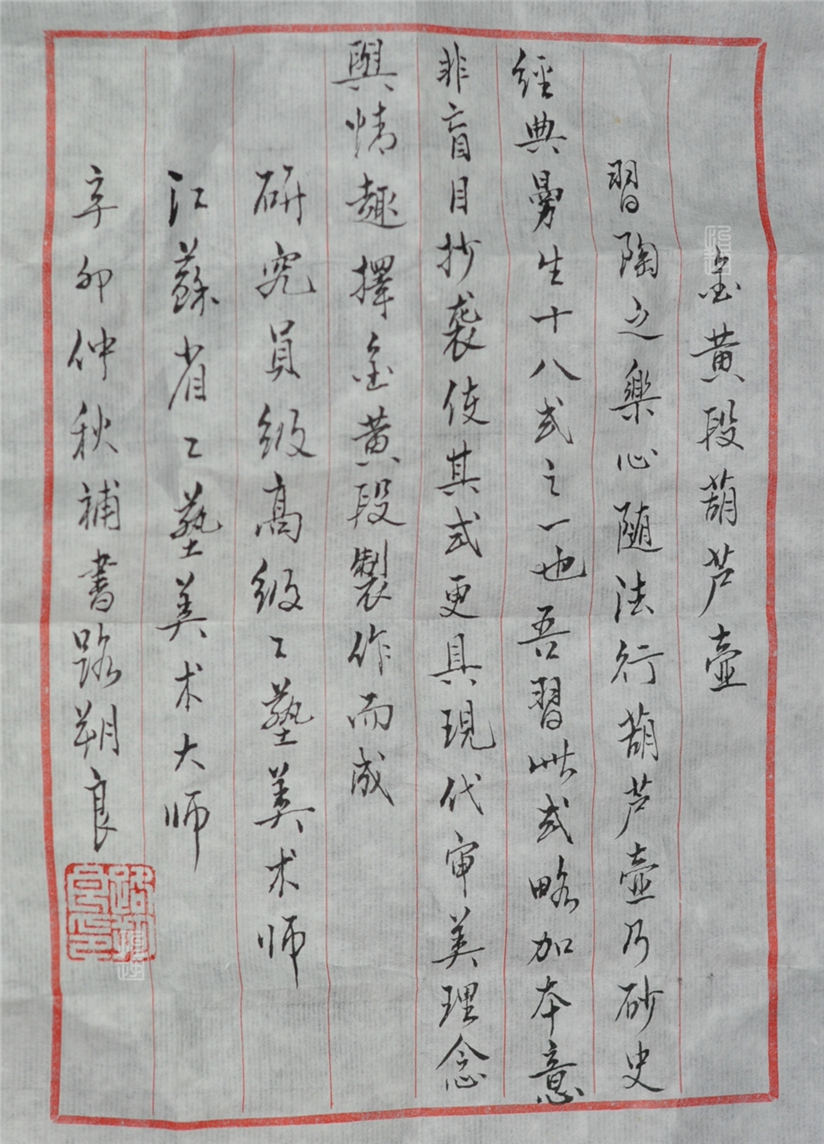 金黄段葫芦壶
習陶之樂心随法行葫芦壶乃砂史
經典曼生十八式之一也吾習此式略加本意
非盲目抄袭使其式更具現代审美理念
與情趣擇金黄段製作而成
研究員级高级工藝美术师
江蘇省工藝美术大师
辛卯仲秋補書路朔良